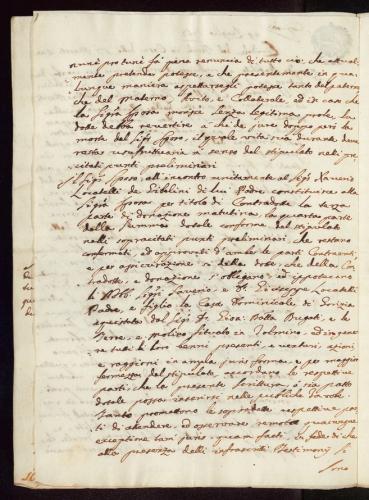 anni pro tunc fà piena renuncia di tutto ciò che attual-
mente pretender potesse, e che presentemente in qua-
lunque maniera aspettarsegli potesse tanto del paterno
che del materno Avito, e Collaterale, ed in caso che
la Sig.ra Sposa morisse senza legittima prole, la
dote debba revertire a chi de jure doppo però la
morte del Sig.r Sposo, il quale vita sua durante deve
restar usufruttuario a senso del stipulato nelli pre-
citati punti preliminari
Il Sig.r Sposo all'incontro unitamente al Sig.r Xaverio
Locatelli de di lui Padre constituisce alla
Sig.ra Sposa per titolo di Contradote la terza
parte di donazione matutina, la quarta parte
della summa dotale conforme del stipulato
nelli sopracitati punti preliminari, che restano
confermati, ed approvati d'ambe le parti Contraenti,
e per assicurazione sì della dote, che della Con-
tradote, e donazione s'obligano, ed ippotecano
li Nobb. Sig.ri Xaverio, e Giuseppe Locatelli
Padre, e figlio la Casa Dominicale di
acquistata dal Sig.r Gioa: Batta e le
Terre, e molino situato in Tolmino, ed in gene-
re tutti li loro benni presenti, e venturi, azioni
e raggioni in ampla juris forma, e per maggior
fermezza del stipulato accordano le respettive
parti, che la presente Scrittura, ò sia patto
dotale possa inserirsi nelle publiche Tavole
Tanto promettono le sopradette respettive par-
ti di attendere, ed osservare, remota quacunque
exceptione tam juris, quam facti, in fede di che
alla presenza delli infrascritti Testimonj si
sono